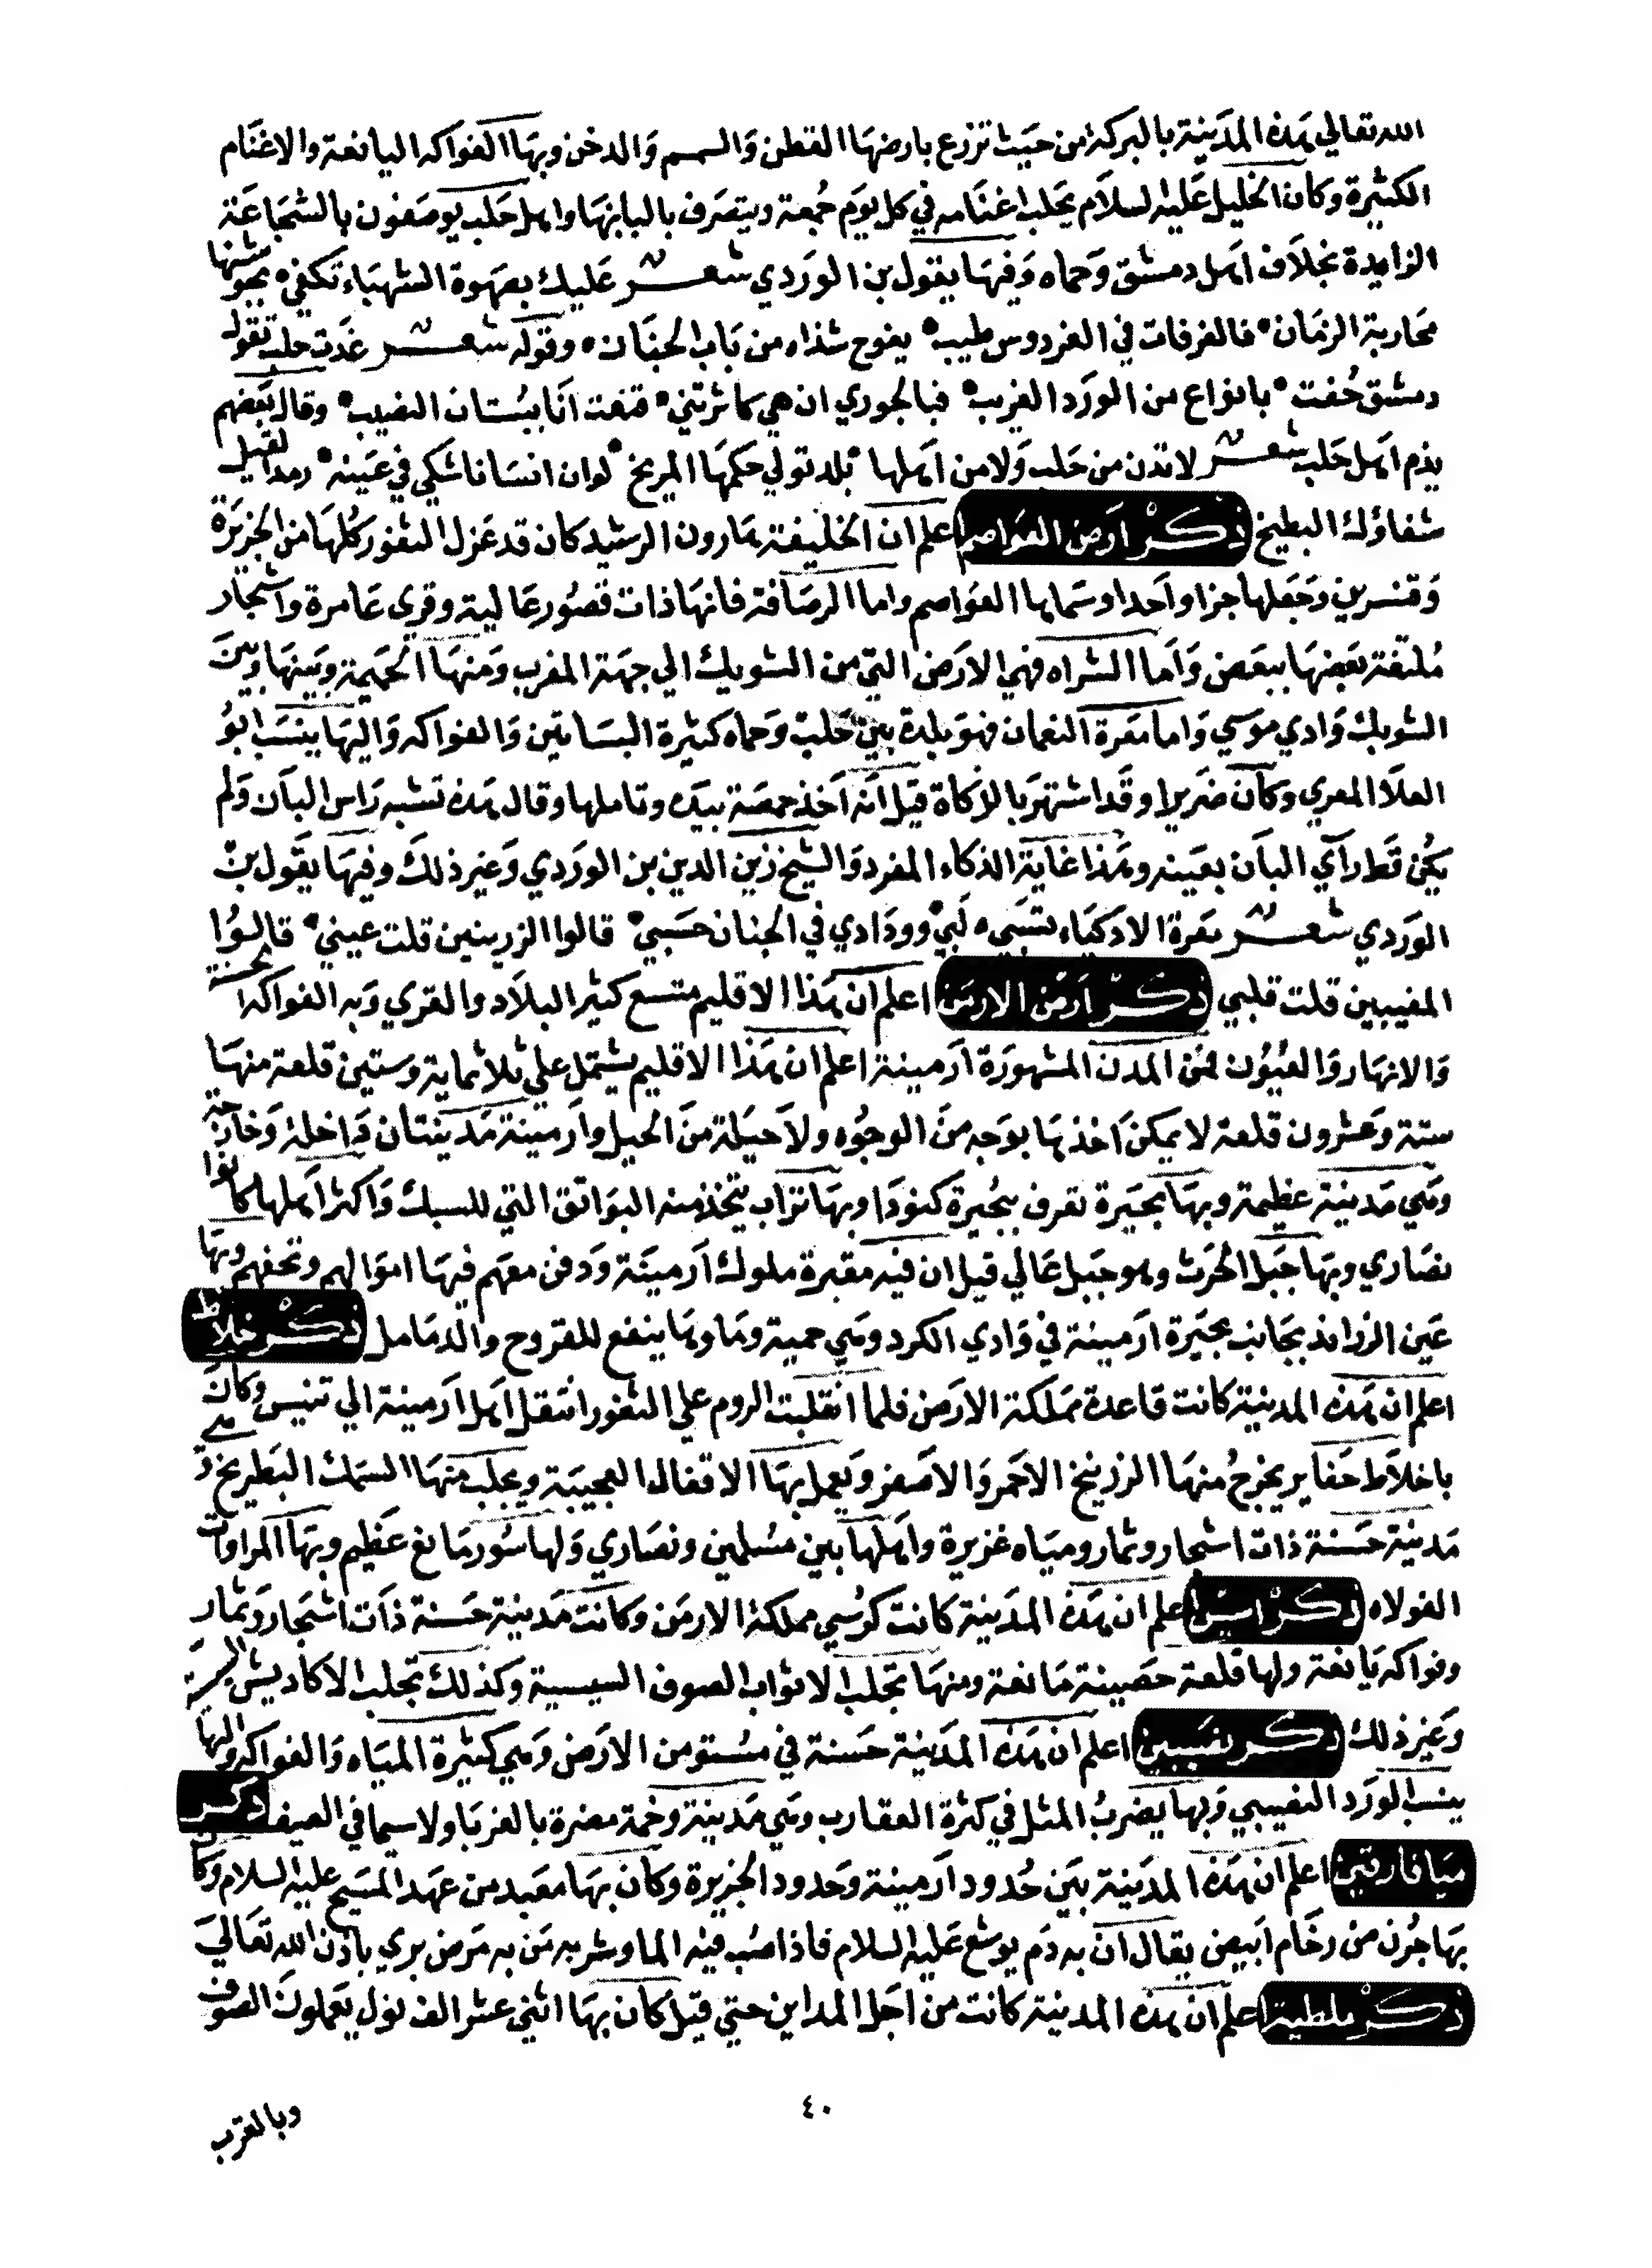 الله تعالي بهذه المدينة بالبركة من حيث تزرع بارضها القطن والسمسم والدخن وبها الفواكه اليانعة والاغنام
الكثيرة وكان الخليل عليه السلام يحلب اغنامه في كل يوم جمعة ويتصرف بالبانها واهل حلب يوصفون بالشجاعة
الزايدة بخلاف اهل دمشق وحماه وفيها يقول بن الوردي شعر عليك بصهوة الشهباء تكفي بجوشنها
محاربة الزمان فالغرفات في الفردوس طيب يفوح شذاه من باب الجنان وقوله شعر غدت حلب تقول
دمشق خفت بانواع من الورد الغريب فبالجوري ان هي كاثرتني قنعت انا ببستان النصيب وقال بعضهم
يذم اهل حلب شعر لا تدن من حلب ولا من اهلها بلد تولي حكمها المريخ لو ان انسانا شكي في عينه رمدا لقيل
شفاؤك البطيخ ذكر ارض العواصم اعلم ان الخليفة هارون الرشيد كان قد عزل الثغور كلها من الجزيرة
وقنسرين وجعلها جزا واحدا وسماها العواصم واما الرصافة فانها ذات قصور عالية وقري عامرة واشجار
ملتفة بعضها ببعض واما الشراه فهي الارض التي من الشوبك الي جهة المغرب ومنها الحميمة وبينها وبين
الشوبك وادي موسي واما معرة النعمان فهو بلدة بين حلب وحماه كثيرة البساتين والفواكه واليها ينسب ابو
العلا المعري وكان ضريرا وقد اشتهر بالزكاة قيل انه اخذ حمصة بيده وتاملها وقال هذه تشبه راس البان ولم
يكن قط راي البان بعينه وهذا غاية الذكاء المفرد والشيخ زين الدين بن الوردي وغير ذلك وفيها يقول بن
الوردي شعر معرة الادكياء تسبي لبي وودادي في الجنان حسبي قالوا الزرينين قلت عيني قالوا
المغيبين قلت قلبي ذكر ارض الارمن اعلم ان هذا الاقليم متسع كثير البلاد والقري وبه الفواكه الحسنة
والانهار والعيون فمن المدن المشهورة ارمينة اعلم ان هذا الاقليم يشتمل علي ثلاثماية وستين قلعة منها
ستة وعشرون قلعة لا يمكن اخذها بوجه من الوجوه ولا حيلة من الحيل وارمينة مدينتان داخلة وخارجة
وهي مدينة عظيمة وبها بحيرة تعرف ببحيرة كنودا وبها تراب يتخذ منه البواتق التي للسبك واكثر اهلها كانوا
نصاري وبها جبل الحرث وهو جبل عالي قيل ان فيه مقبرة ملوك ارمينة ودفن معهم فيها اموالهم وتحفهم وبها
عين الزراند بجانب بحيرة ارمينة في وادي الكرد وهي حمية وماوها ينفع للقروح والدمامل ذكر خلاط
اعلم ان هذه المدينة كانت قاعدة مملكة الارمن فلما انقلبت الروم علي الثغور انتقل اهل ارمينة الي تنيس وكان
باخلاط حفاير يخرج منها الزرنيخ الاحمر والاصفر ويعمل بها الاقفال العجيبة ويجلب منها السمك البطريخ وهي
مدينة حسنة ذات اشجار وثمار ومياه غزيرة واهلها بين مسلمين ونصاري ولها سور مانع عظيم وبها المراوات
الفولاه ذكر سيس اعلم ان هذه المدينة كانت كرسي مملكة الارمن وكانت مدينة حسنة ذات اشجار وثمار
وفواكه يانعة ولها قلعة حصينة مانعة ومنها تجلب الاثواب الصوف السيسية وكذلك تجلب الاكاديش السيسية
وغير ذلك ذكر نصيبين اعلم ان هذه المدينة حسنة في مستو من الارض وهي كثيرة المياه والفواكه واليها
ينسب الورد النصيبي وبها يضرب المثل في كثرة العقارب وهي مدينة وخمة مضرة بالغربا ولا سيما في الصيف ذكر
ميافارقين اعلم ان هذه المدينة بين حدود ارمينة وحدود الجزيرة وكان بها معبد من عهد المسيح عليه السلام وكا
بها جرن من رخام ابيض يقال ان به دم يوشع عليه السلام فاذا صب فيه الما وشربه من به مرض بري باذن الله تعالي
ذكر ملطية اعلم ان هذه المدينة كانت من اجل المداين حتي قيل كان بها اثني عشر الف نول يعملون الصوف
٤٠
وبالقرب